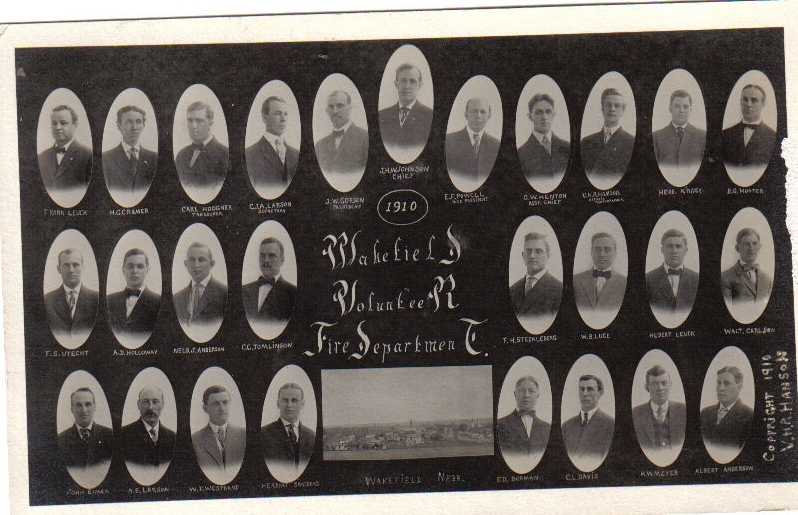 FRANK LEUCK
H.G. CRAMER
CARL HOOGNER
TREASURER
C.J.A. LARSON
SECRETARY
J.W. GORSON
PRESIDENT
J.H.W. JOHNSON
CHIEF
E.F. POWELL
VICE PRESIDENT
O.W. HENTON
ASST. CHIEF
V.H.R. HANSON
HERB.
HUNTER
1910
Wakefield
Volunteer
Fire Department.
F.S. UTECHT
A.D. HOLLOWAY
NELS. J. ANDERSON
C.C. TOMLINSON
F.H. STECKLEBERG
W.S. LUCE
HUBERT LEUCK
WALT. CARLSON
JOHN
A.E. LARSON
W.F. WESTRAND
HERBERT
WAKEFIELD NEBR.
ED. BORMAN
C.L. DAVIS
H.W. MEYER
ALBERT ANDERSON
COPYRIGHT 1910
V.H.R. HANSON